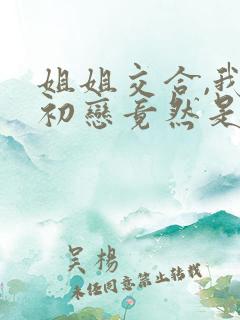 姐姐交合,我
初戀竟然是
吴楊
未任同意禁止转载